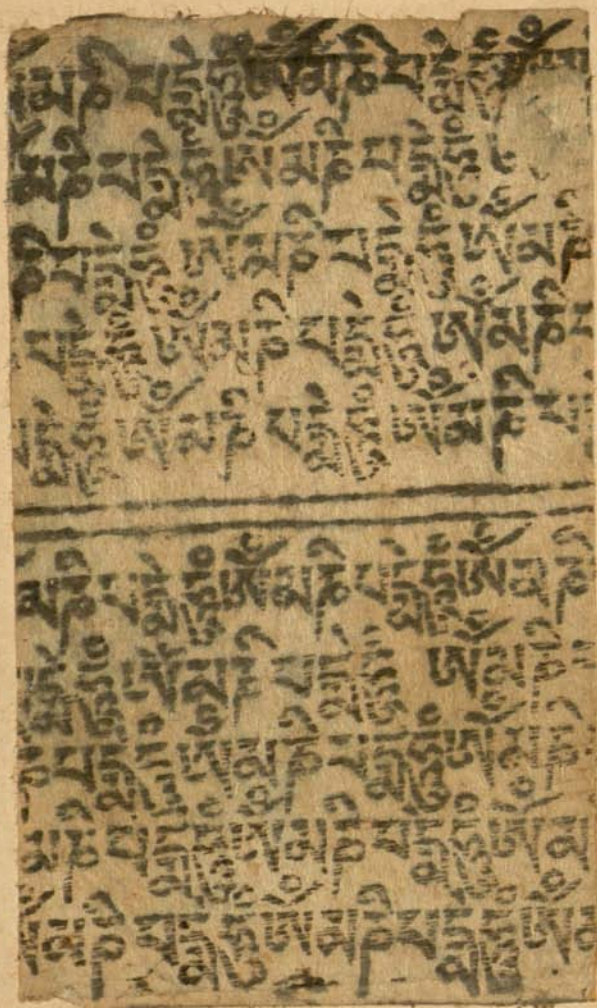 མཎིཔདྨེཧཱུྃཨོཾམཎིཔདྨེཧཱུྃཨོཾ
མཎིཔདྨེཧཱུྃཨོཾམཎིཔདྨེཧཱུྃ
ཎིཔདྨེཧཱུྃཨོཾམཎིཔདྨེཧཱུྃཨོཾམ
པདྨེཧཱུྃཨོཾམཎིཔདྨེཧཱུྃཨོཾམཎི
པདྨེཧཱུྃཨོཾམཎིཔདྨེཧཱུྃཨོཾམཎིཔ
མཎིཔདྨེཧཱུྃཨོཾམཎིཔདྨེཧཱུྃཨོཾམཎི
དྨེཧཱུྃཨོཾམཎིཔདྨེཧཱུྃཨོཾམཎི
ཎིཔདྨེཧཱུྃཨོཾམཎིཔདྨེཧཱུྃཨོཾམཎི
མཎིཔདྨེཧཱུྃཨོཾམཎིཔདྨེཧཱུྃཨོཾམ
མཎིཔདྨེཧཱུྃཨོཾམཎིཔདྨེཧཱུྃཨོཾམ